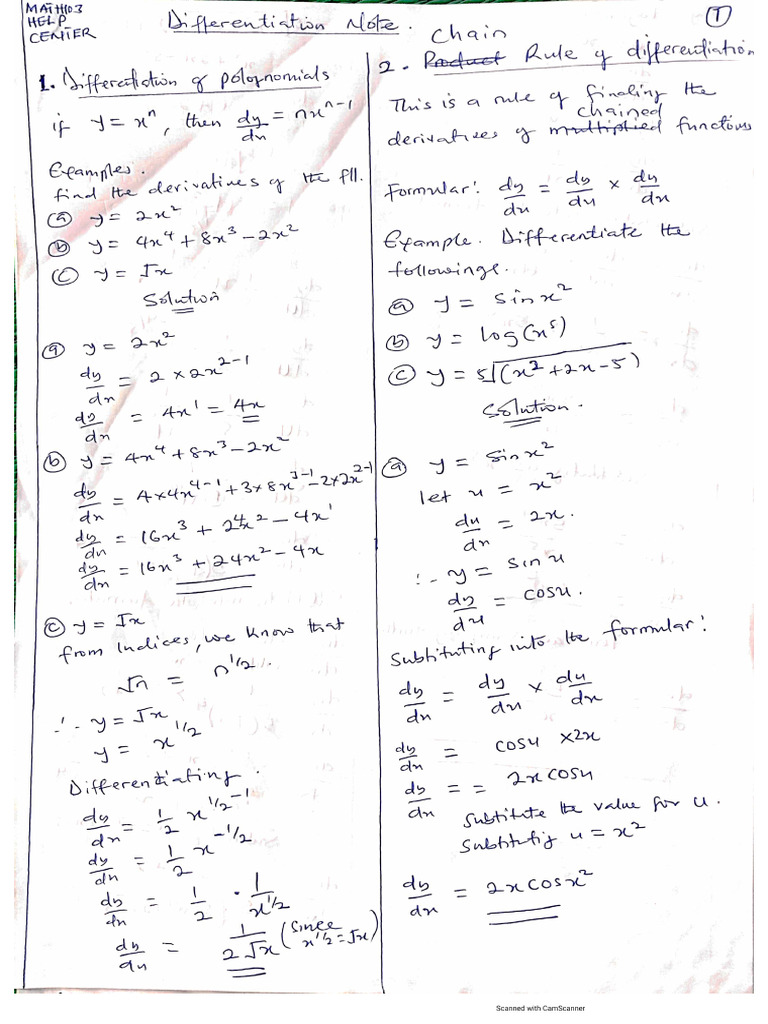 MATH103
HELP
CENTER
Differentiation Note.
①
1. Differentiation of polognomials
if y = xⁿ, then dy/dx = nxⁿ⁻¹
Examples.
find the derivatives of the fll.
ⓐ y = 2x²
ⓑ y = 4x⁴ + 8x³ − 2x²
ⓒ y = √x
Solution
ⓐ y = 2x²
dy/dx = 2 × 2x²⁻¹
dy/dx = 4x¹ = 4x
ⓑ y = 4x⁴ + 8x³ − 2x²
dy/dx = 4×4x⁴⁻¹ + 3×8x³⁻¹ − 2×2x²⁻¹
dy/dx = 16x³ + 24x² − 4x¹
dy/dx = 16x³ + 24x² − 4x
ⓒ y = √x
from Indices, we know that
√n = n^1/2.
∴ y = √x
y = x^1/2
Differentiating.
dy/dx = 1/2 x^1/2 −1
dy/dx = 1/2 x^−1/2
dy/dx = 1/2 · 1/x^1/2
dy/dx = 1/2√x (Since x^1/2 = √x)
chain
2. Product Rule of differentiation
This is a rule of finding the
chained
derivatives of multiplied functions
Formular: dy/dx = dy/du × du/dx
Example. Differentiate the
followings.
ⓐ y = sinx²
ⓑ y = log(x⁵)
ⓒ y = 5√(x² + 2x − 5)
Solution.
ⓐ y = sinx²
let u = x²
du/dx = 2x.
∴ y = sin u
dy/du = cosu.
Substituting into the formular:
dy/dx = dy/du × du/dx
dy/dx = cosu × 2x
dy/dx = = 2x cosu
Substitute the value for u.
Substitutig u = x²
dy/dx = 2x cosx²
Scanned with CamScanner